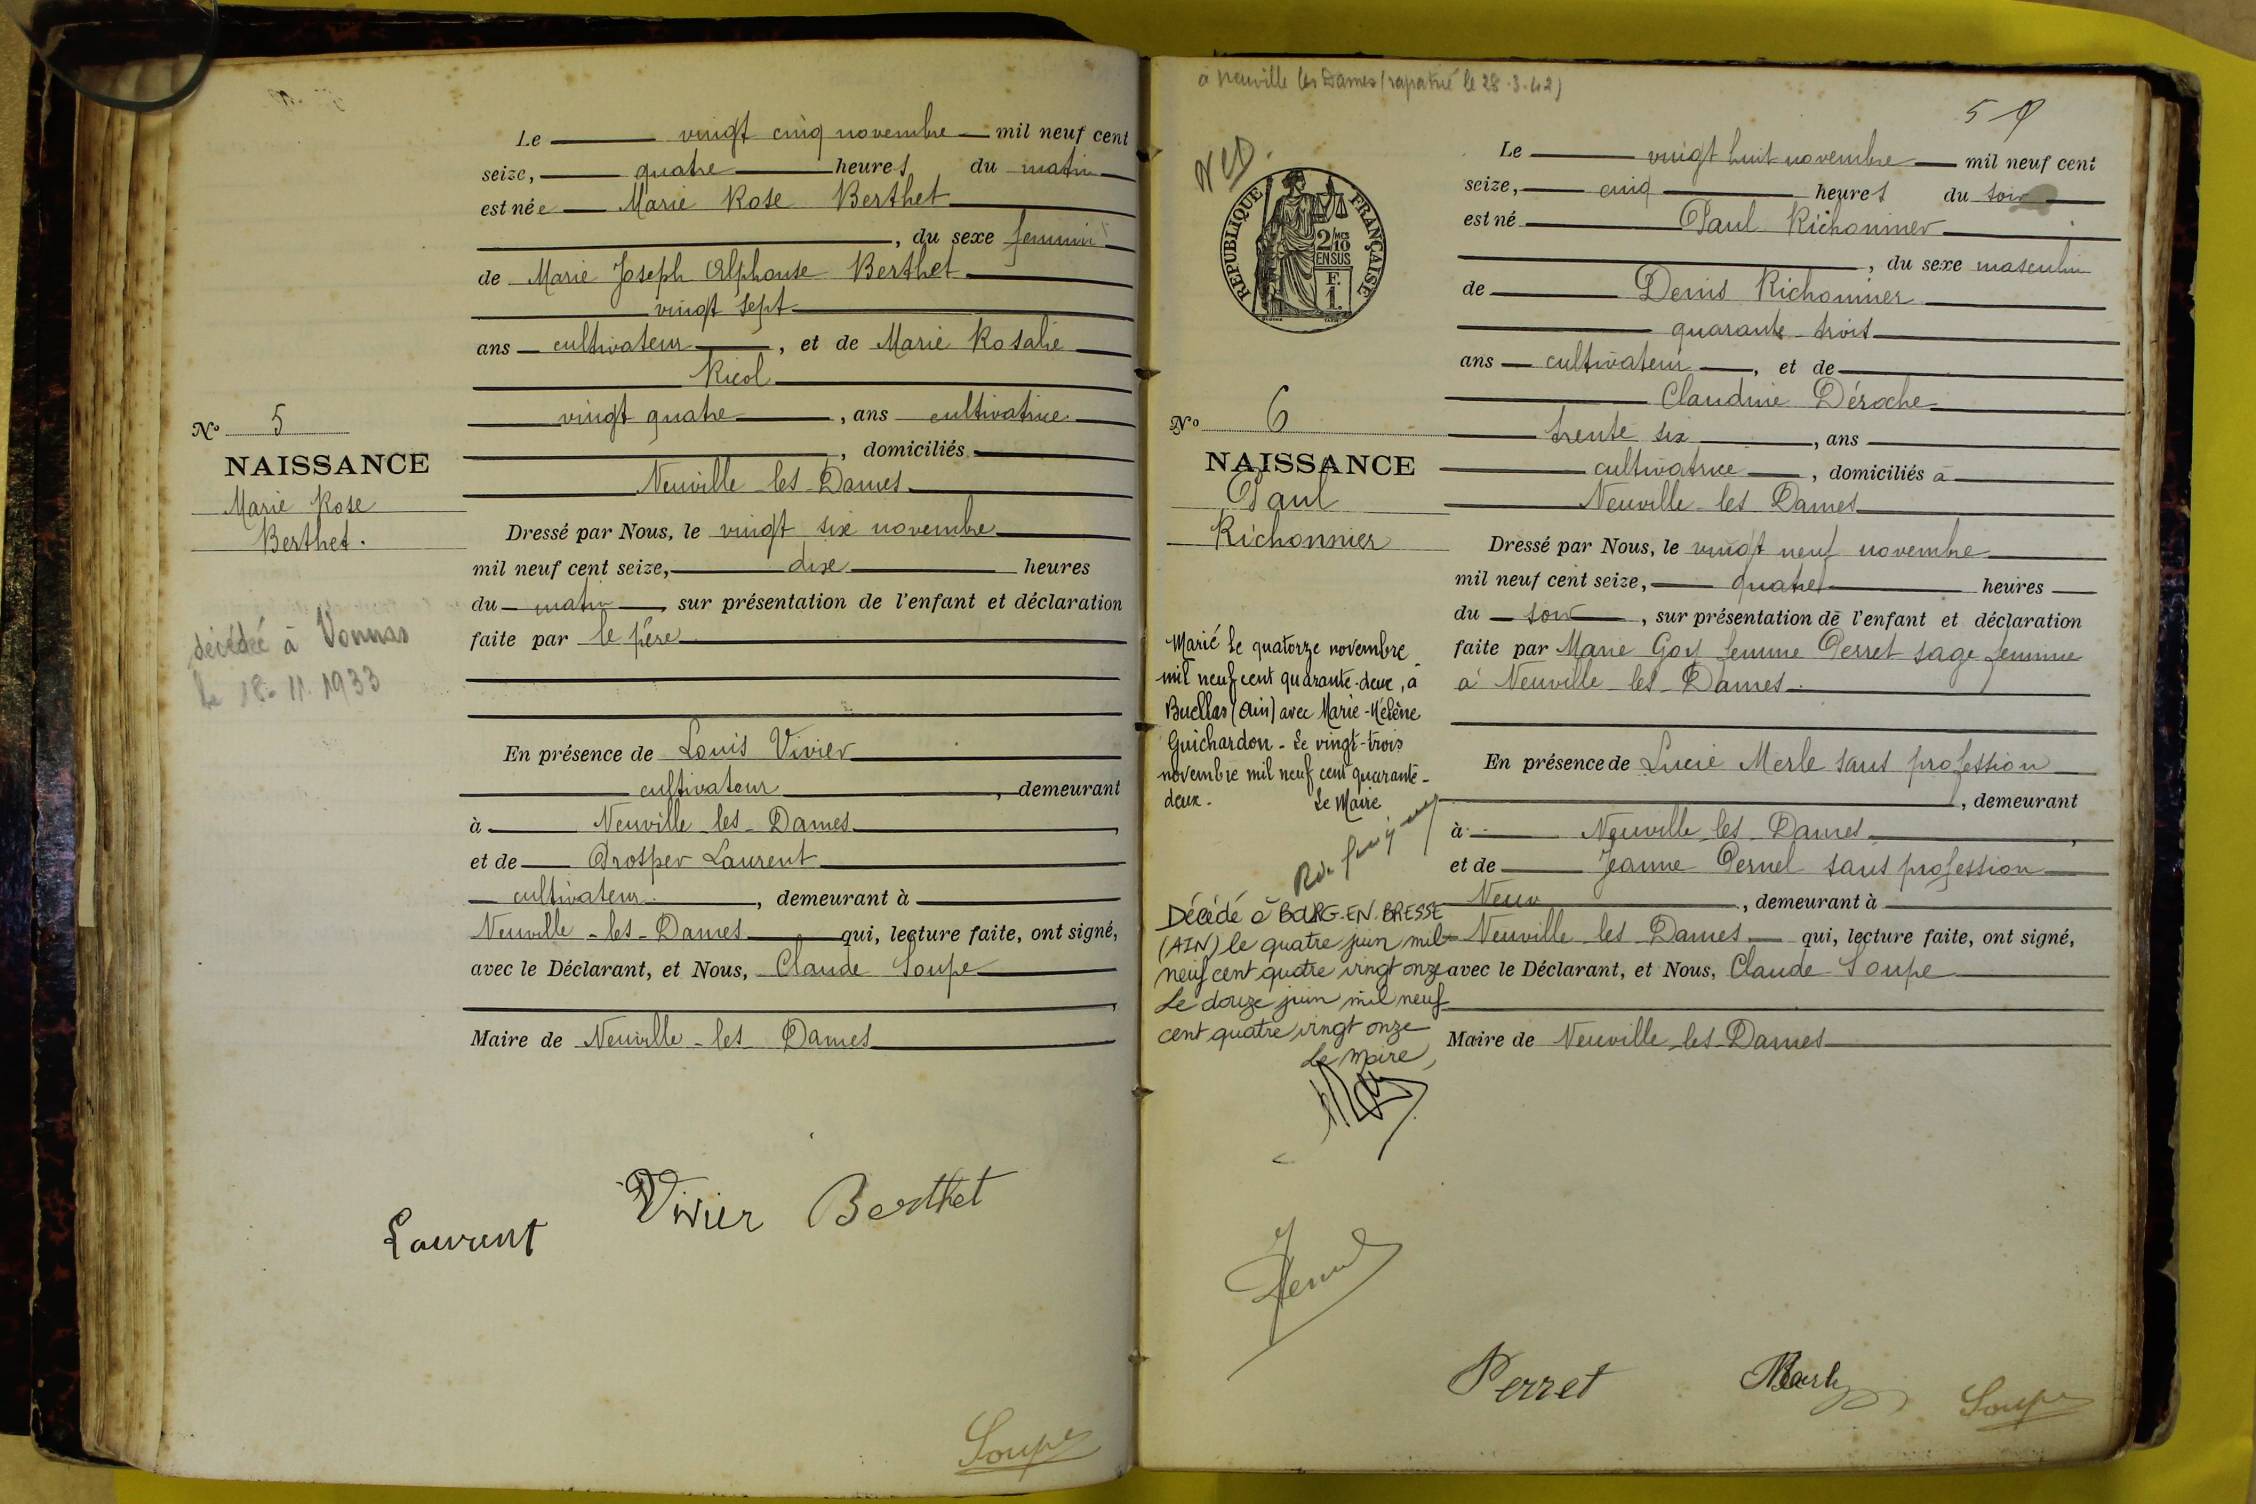 Le vingt cinq novembre mil neuf cent
seize, quatre heures du matin
est née Marie Rose Berthet
, du sexe feminin
de Marie Joseph Alphonse Berthet
vingt sept
ans cultivateur , et de Marie Rosalie
Ricol
vingt quatre , ans cultivatrice
, domiciliés
Neuville les Dames
Nº 5
NAISSANCE
Marie Rose
Berthet.
décédée à Vonnas
le 18-11-1933
Dressé par Nous, le vingt six novembre
mil neuf cent seize, dix heures
du matin , sur présentation de l'enfant et déclaration
faite par le père
En présence de Louis Vivier
cultivateur , demeurant
à Neuville les Dames ,
et de Prosper Laurent
cultivateur , demeurant à
Neuville - les - Dames qui, lecture faite, ont signé,
avec le Déclarant, et Nous, Claude Soupe
,
Maire de Neuville - les Dames
Laurent Vivier Berthet
Soupe
à Neuville les Dames (rapatrié le 28.3.42)
5
RÉPUBLIQUE FRANÇAISE
2/10 MES
EN SUS
F.
1.
Le vingt huit novembre mil neuf cent
seize, cinq heures du soir
est né Paul Richonnier
, du sexe masculin
de Denis Richonnier
quarante trois
ans cultivateur , et de
Claudine Déroche
trente six , ans
cultivatrice , domiciliés à
Neuville les Dames
Nº 6
NAISSANCE
Paul
Richonnier
Dressé par Nous, le vingt neuf novembre
mil neuf cent seize, quatre heures
du soir , sur présentation de l'enfant et déclaration
faite par Marie Goy femme Perret sage femme
à Neuville les Dames
En présence de Lucie Merle sans profession
, demeurant
à Neuville les Dames ,
et de Jeanne Pernel sans profession
Neuv , demeurant à
Neuville les Dames qui, lecture faite, ont signé,
avec le Déclarant, et Nous, Claude Soupe
Maire de Neuville les Dames
Marié le quatorze novembre
mil neuf cent quarante-deux, à
Buellas (Ain) avec Marie-Hélène
Guichardon - Le vingt-trois
novembre mil neuf cent quarante-
deux. Le Maire
Décédé à BOURG.EN.BRESSE
(AIN) le quatre juin mil
neuf cent quatre vingt onze
Le douze juin mil neuf
cent quatre vingt onze
Le Maire,
Perret Soupe